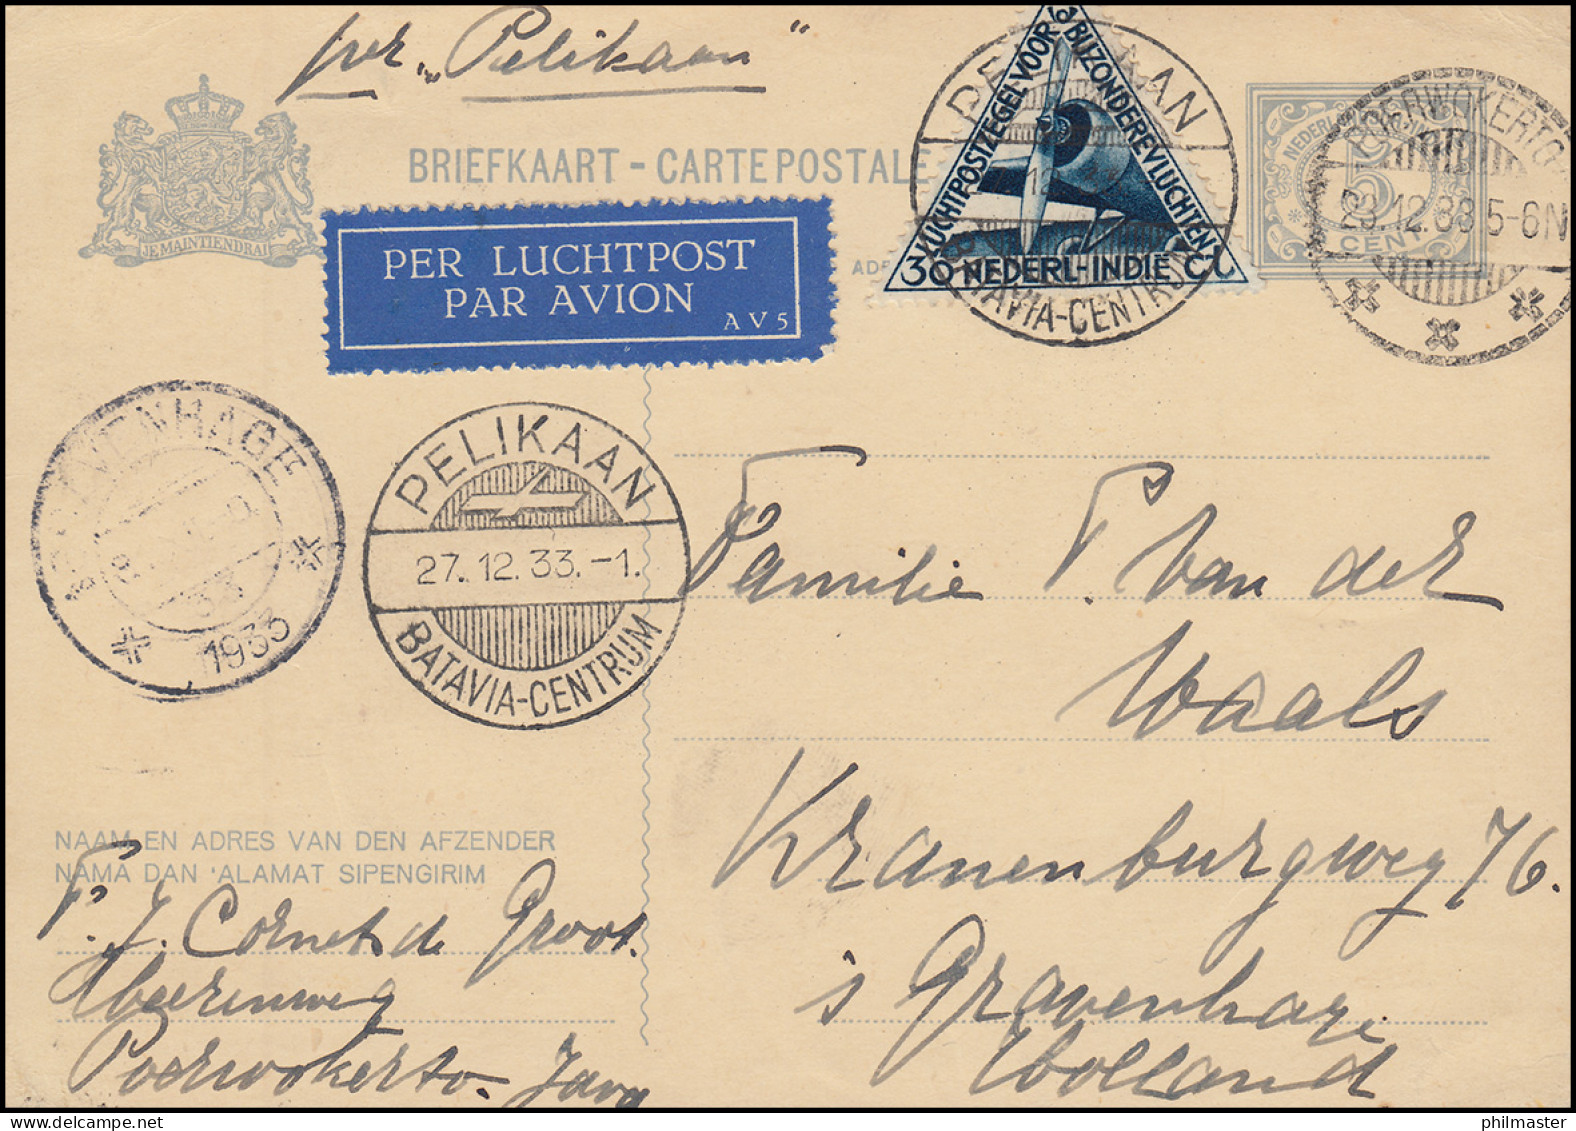 per „Pelikaan"
BRIEFKAART - CARTE POSTALE
JE MAINTIENDRAI
PER LUCHTPOST
PAR AVION
AV5
LUCHTPOSTZEGEL VOOR BIJZONDERE VLUCHTEN
30 NEDERL-INDIE CT
PELIKAAN
BATAVIA-CENTRUM
NEDERL
5
CENT
POERWOKERTO
23.12.33 5-6N
'S GRAVENHAGE
1933
PELIKAAN
27.12.33.-1.
BATAVIA-CENTRUM
Familie P. van der
Waals
Kranenburgweg 76.
's Gravenhage
Holland
NAAM EN ADRES VAN DEN AFZENDER
NAMA DAN 'ALAMAT SIPENGIRIM
P. J. Cornets de Groot.
Poerwokerto. Java
philmaster